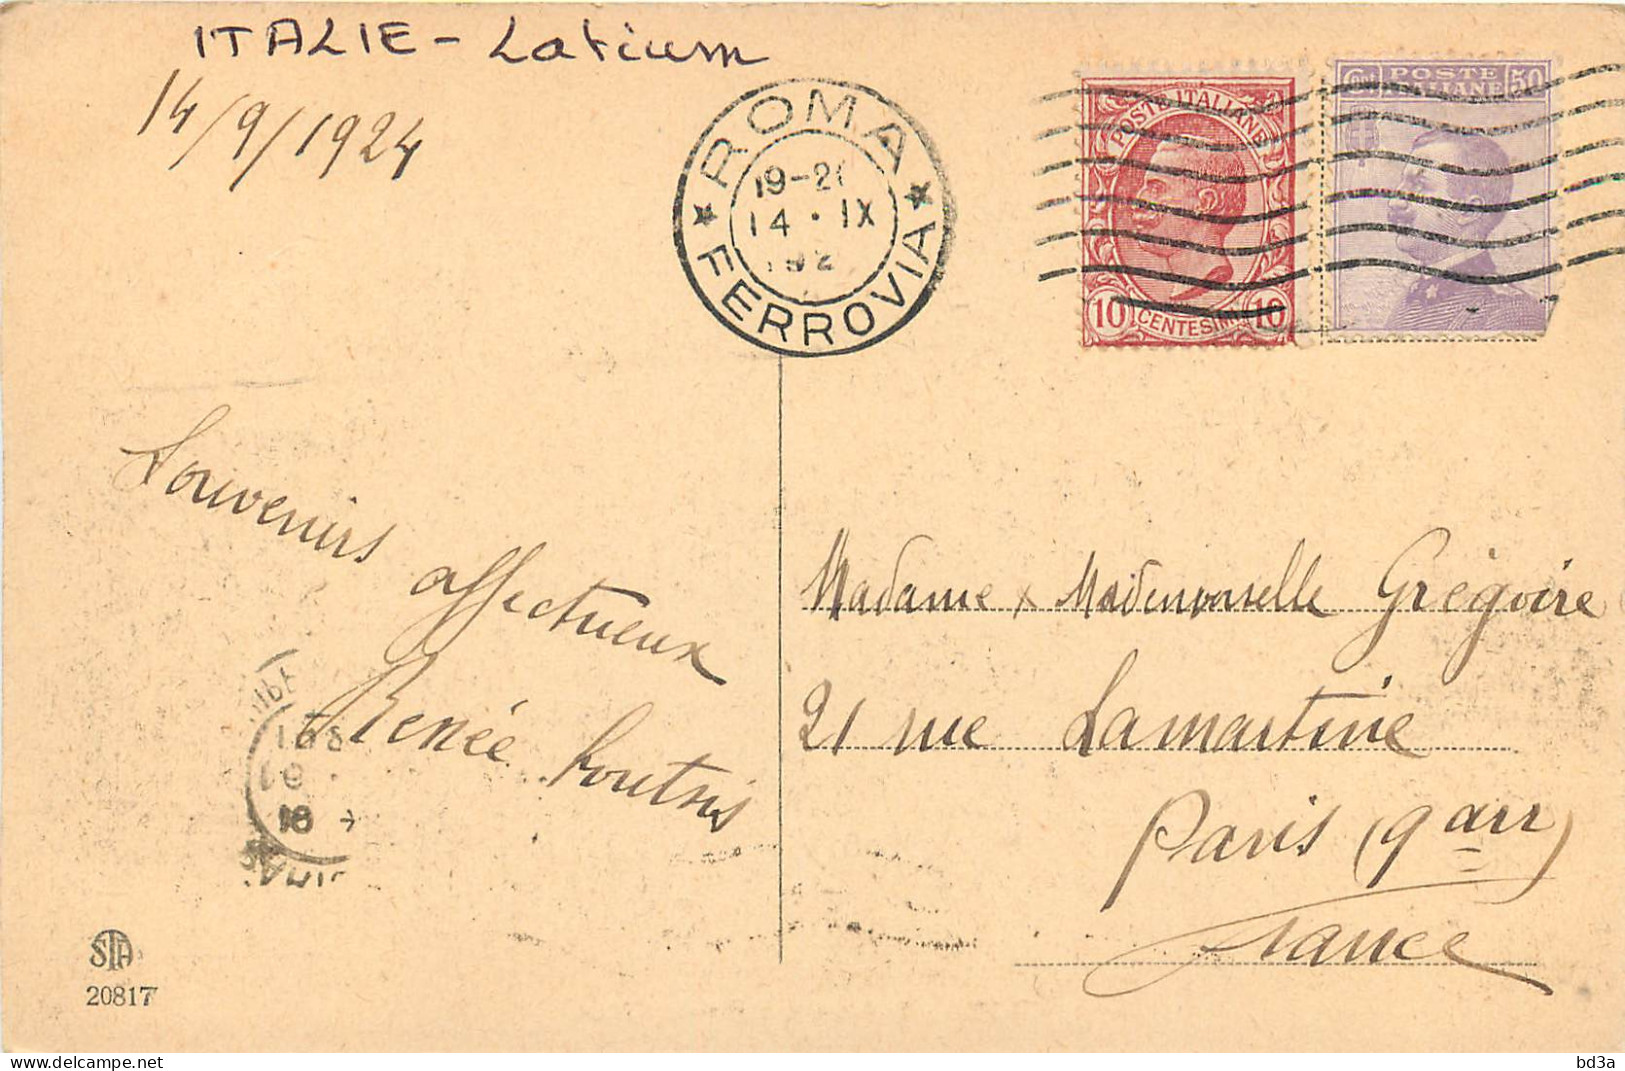 ITALIE - Latium
14/9/1924
ROMA
19-2
14 · IX
192
FERROVIA
POSTE ITALIANE
10 CENTESIMI 10
Cent POSTE ITALIANE 50
Souvenirs
affectueux
Renée
Madame x Mademoiselle Grégoire
21 rue Lamartine
Paris (9 arr)
France
STA
20817
bd3a